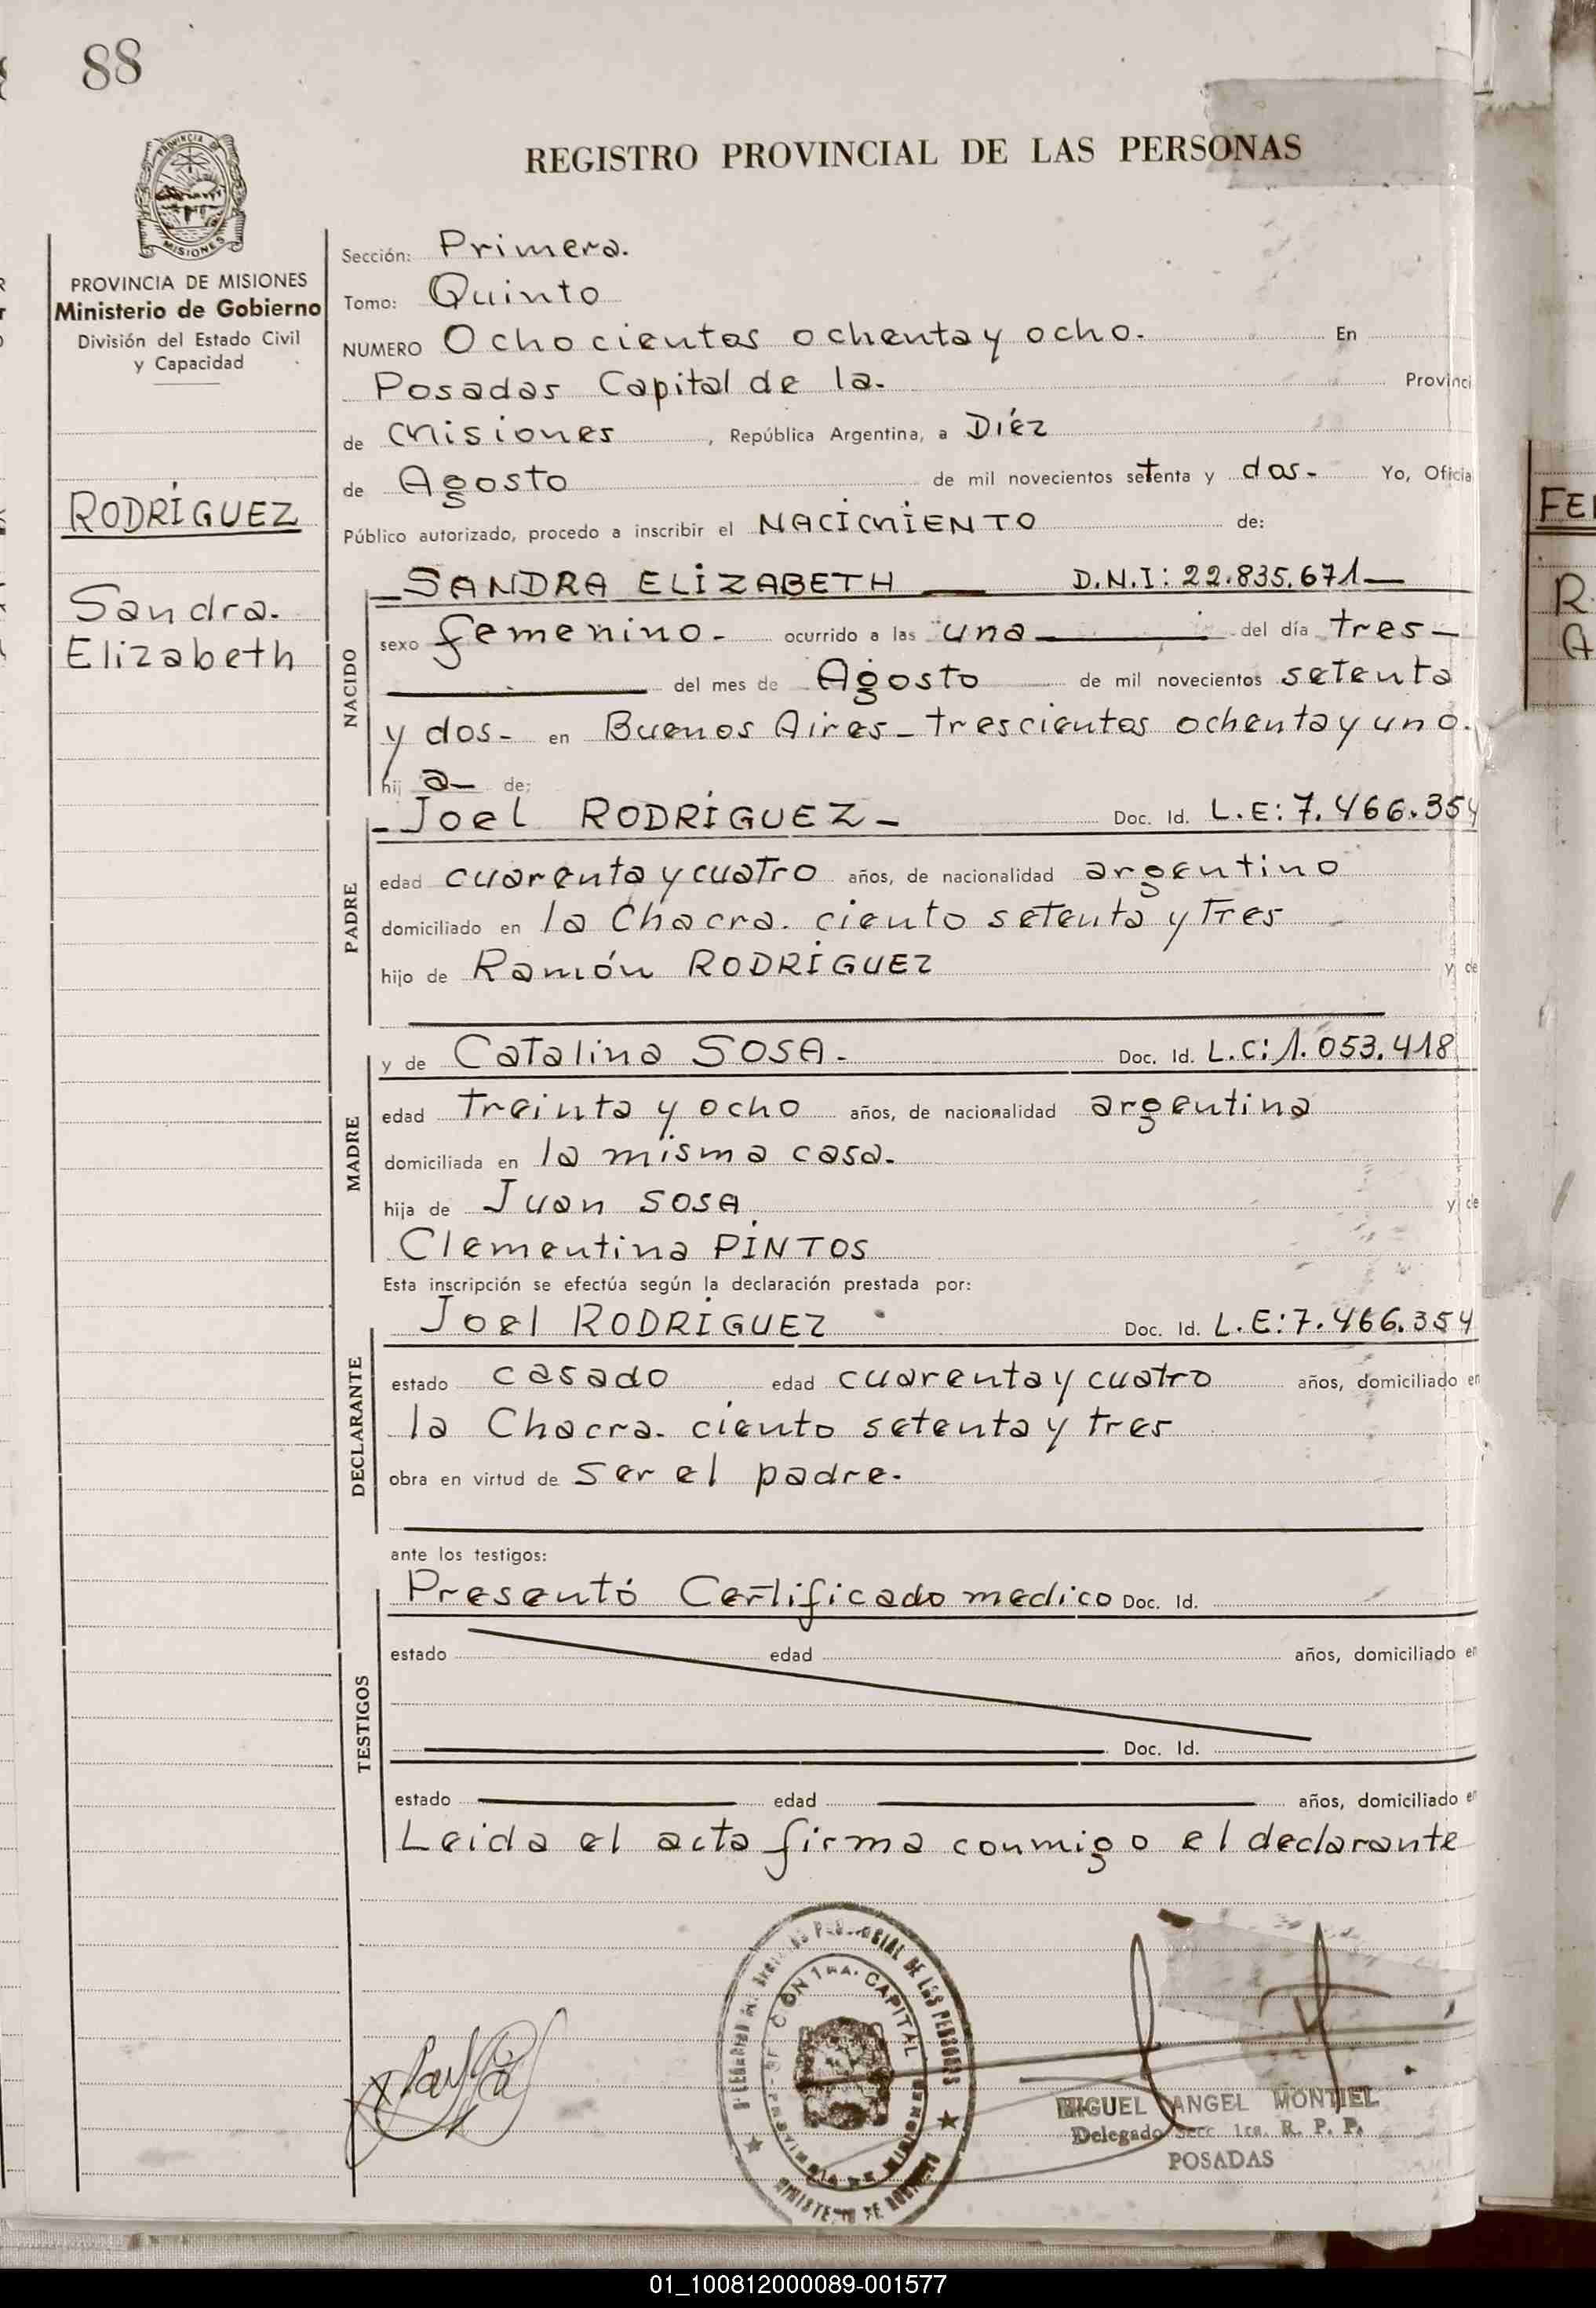 88
REGISTRO PROVINCIAL DE LAS PERSONAS
PROVINCIA
MISIONES
PROVINCIA DE MISIONES
Ministerio de Gobierno
División del Estado Civil
y Capacidad
RODRÍGUEZ
Sandra.
Elizabeth
Sección: Primera.
Tomo: Quinto
NUMERO Ochocientos ochenta y ocho. En
Posadas Capital de la. Provinci
de Misiones , República Argentina, a Diéz
de Agosto de mil novecientos setenta y dos- Yo, Oficia
Público autorizado, procedo a inscribir el NACIMIENTO de:
NACIDO
SANDRA ELIZABETH D.N.I: 22.835.671
sexo femenino- ocurrido a las una del día tres-
del mes de Agosto de mil novecientos setenta
y dos- en Buenos Aires- trescientos ochenta y uno.
hij a- de:
PADRE
-Joel RODRÍGUEZ- Doc. Id. L.E: 7.466.354
edad cuarenta y cuatro años, de nacionalidad argentino
domiciliado en la Chacra. ciento setenta y tres
hijo de Ramón RODRÍGUEZ y de
MADRE
y de Catalina SOSA- Doc. Id. L.C: 1.053.418
edad treinta y ocho años, de nacionalidad argentina
domiciliada en la misma casa.
hija de Juan SOSA y de
Clementina PINTOS
Esta inscripción se efectúa según la declaración prestada por:
DECLARANTE
Joel RODRÍGUEZ Doc. Id. L.E: 7.466.354
estado casado edad cuarenta y cuatro años, domiciliado en
la Chacra. ciento setenta y tres
obra en virtud de ser el padre.
ante los testigos:
TESTIGOS
Presentó Certificado medico Doc. Id.
estado edad años, domiciliado en
Doc. Id.
estado edad años, domiciliado en
Leida el acta firma conmigo el declarante
DE LAS PERSONAS
1RA. CAPITAL
MIGUEL ANGEL MONTIEL
Delegado Secc. 1ra. R. P. P.
POSADAS
FE
R.
A
01_100812000089-001577